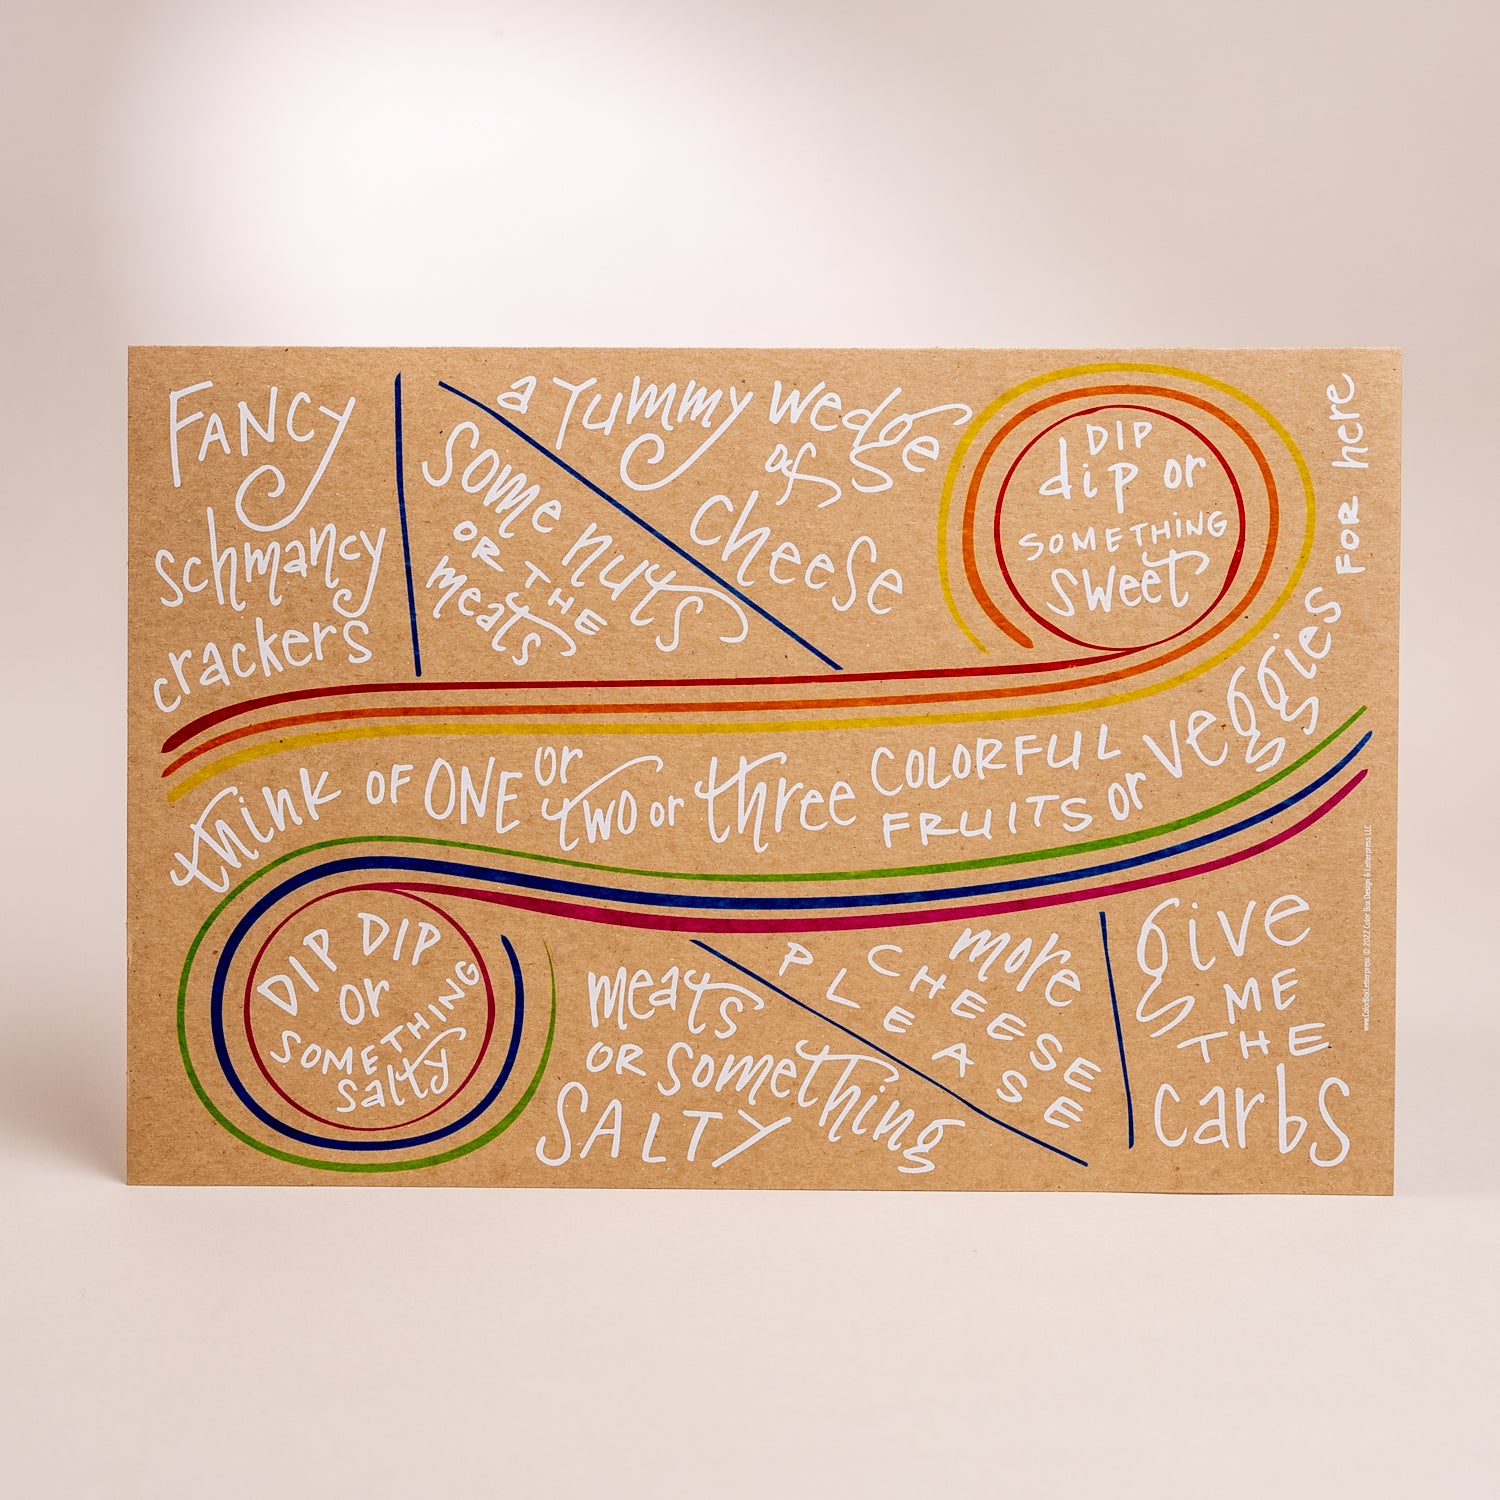 FANCY
schmancy
crackers
some nuts
OR THE
meats
a yummy wedge
of
cheese
DIP
dip or
SOMETHING
sweet
think OF ONE or two or three COLORFUL FRUITS or veggies FOR here
DIP DIP
or
SOMETHING
salty
meats
OR something
SALTY
more
CHEESE
PLEASE
give
ME
THE
carbs
www.ColorBoxLetterpress © 2022 Color Box Design & Letterpress LLC